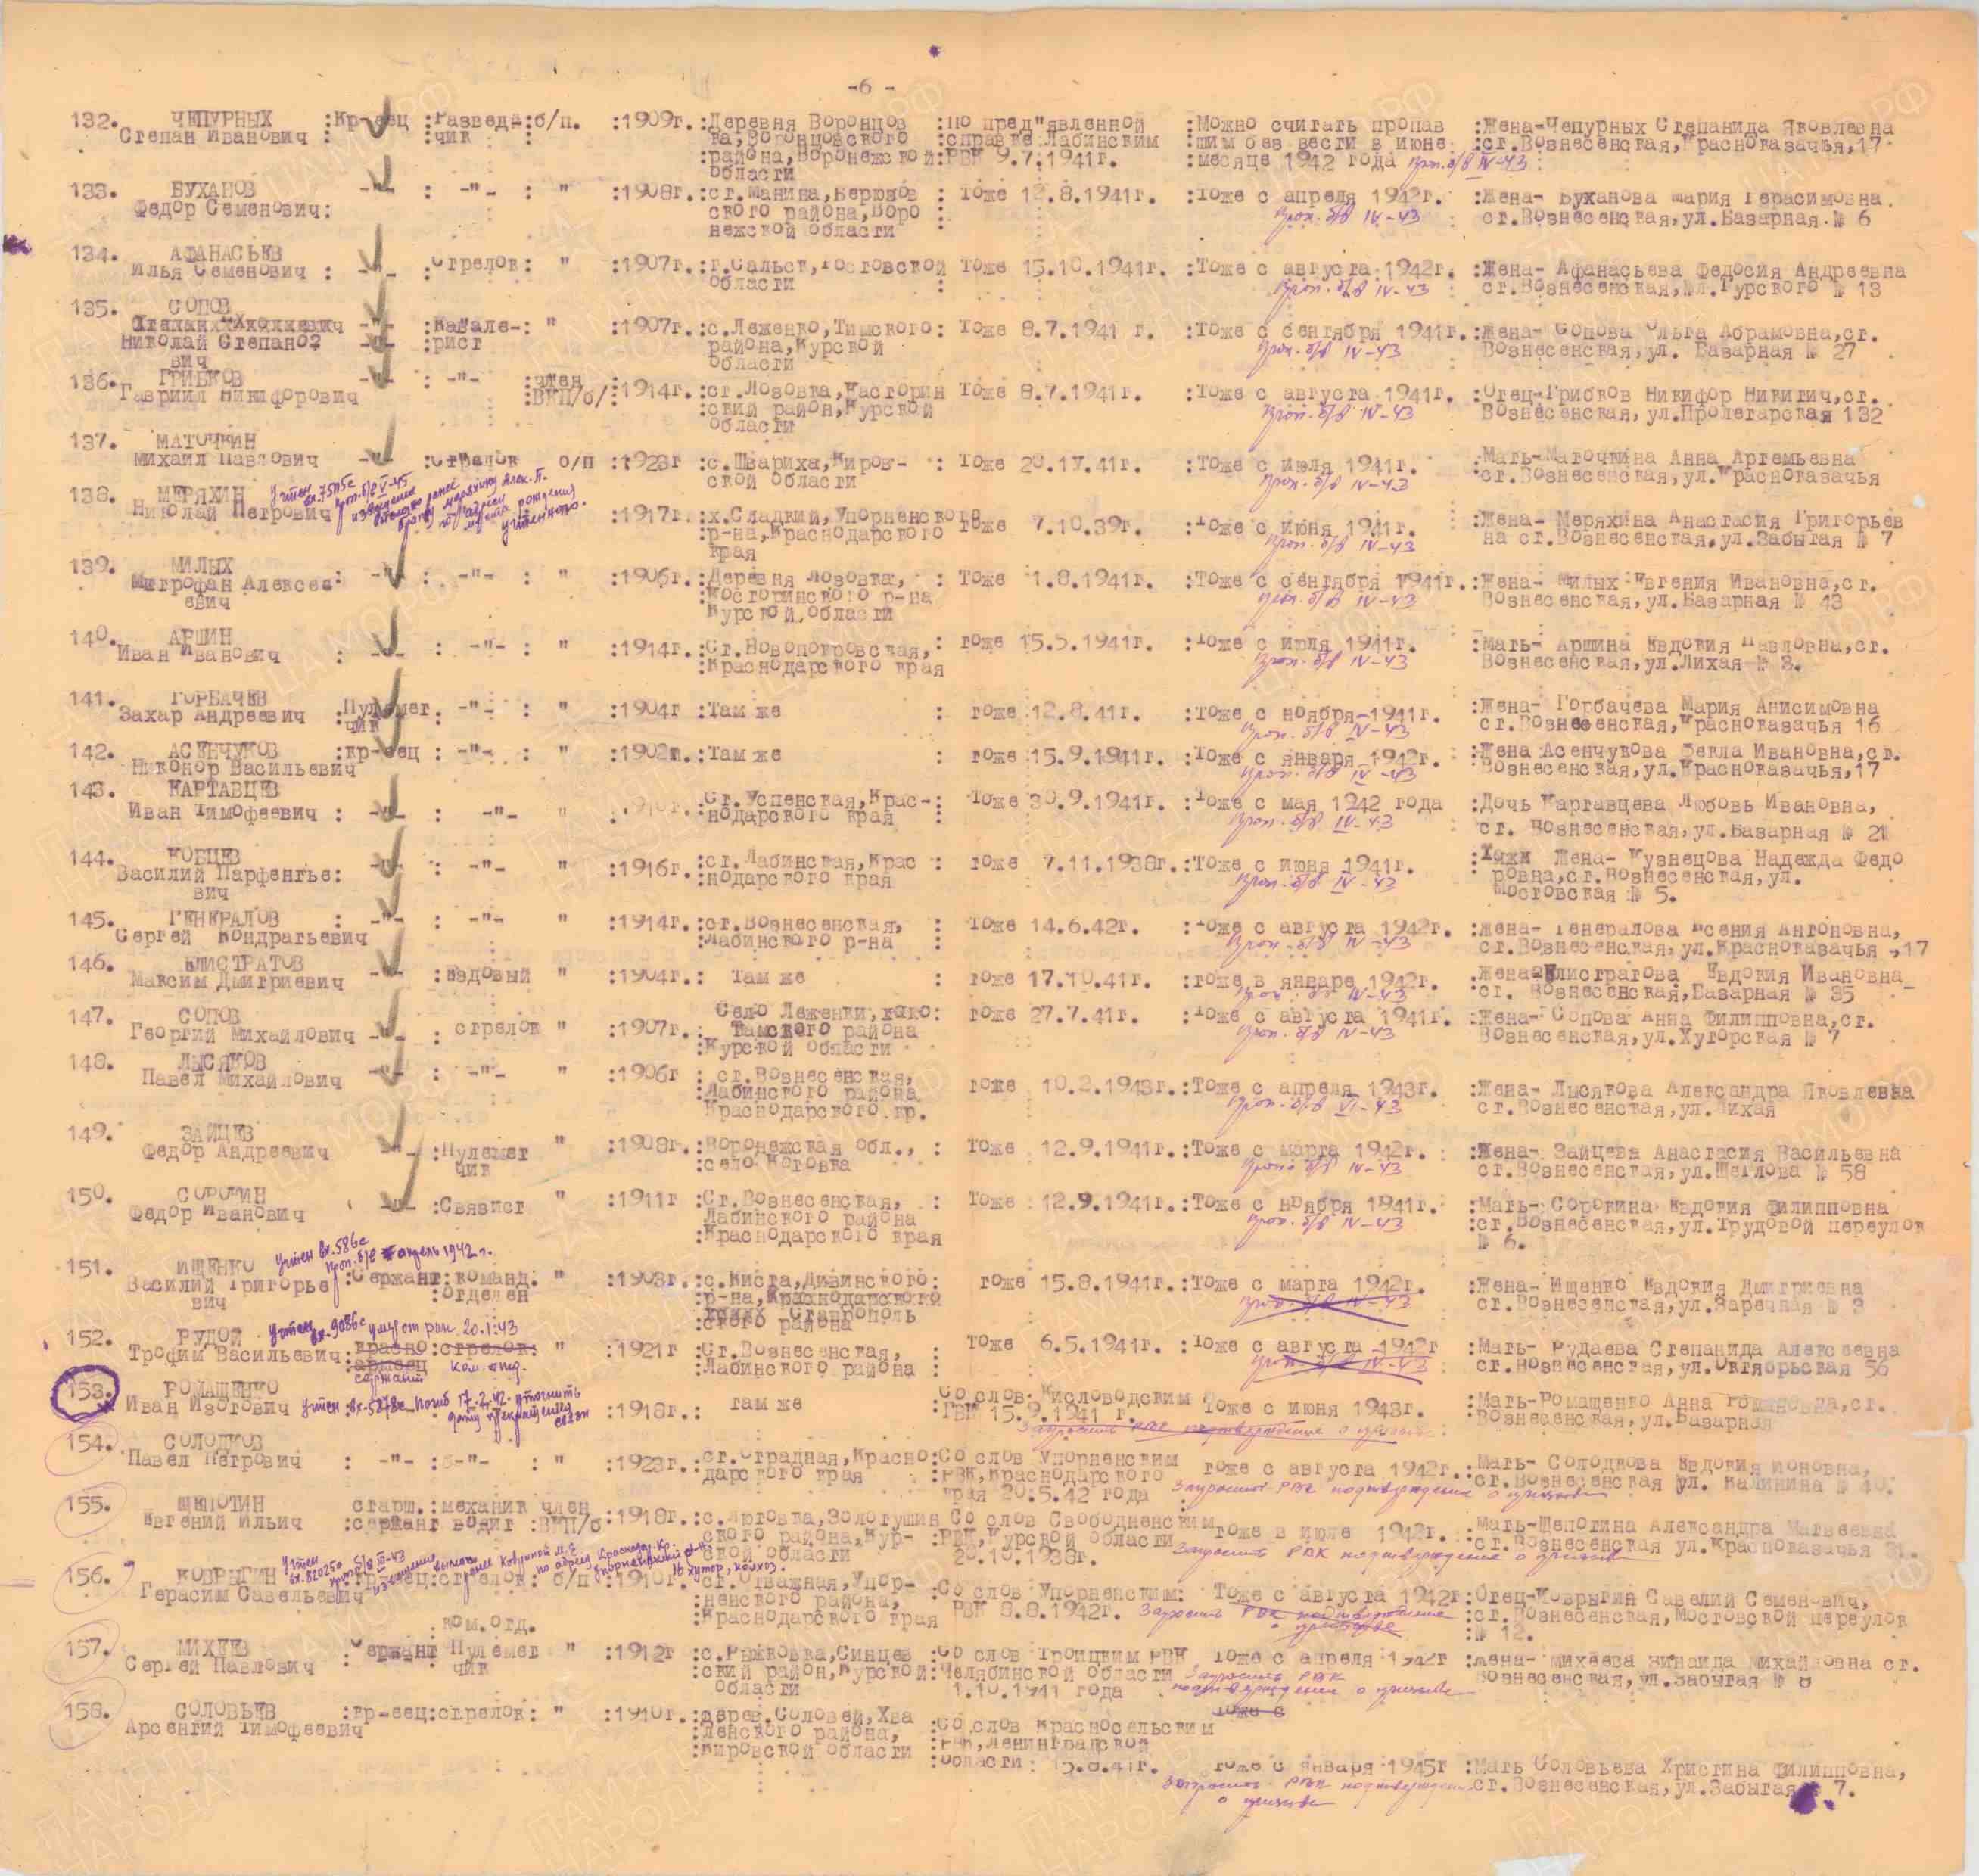 -6-
132. ЧЕПУРНЫХ :Кр-еец :Разведа-:б/п. :1909г. :Деревня Воронцов :По пред"явленной :Можно считать пропав :Жена-Чепурных Степанида Яковлевна
Степан Иванович :чик ка, Воронцовского :справке Лабинским :шим без вести в июне :ст.Вознесенская,Красноказачья,17
:района,Воронежской :РВК 9.7.1941г. :месяце 1942 года Проп. б/в IV-43
области
133. БУХАНОВ -"- : -"- : " :1908г. :ст.Манина,Верюков : Тоже 12.8.1941г. :Тоже с апреля 1942г. :Жена- Буханова Мария Герасимовна
Федор Семенович: ского района,Воро Проп. б/в IV-43 ст.Вознесенская,ул.Базарная № 6
нежской области
134. АФАНАСЬЕВ
Илья Семенович : -"- :Стрелок: " :1907г. :г.Сальск,Ростовской Тоже 15.10.1941г. :Тоже с августа 1942г. :Жена- Афанасьева Федосия Андреевна
области Проп. б/в IV-43 ст.Вознесенская,ул.Гурского № 13
135. СОПОВ
-"- :Кавале-: " :1907г. :с.Леженко,Тимского: Тоже 8.7.1941 г. :Тоже с сентября 1941г. :Жена- Сопова Ольга Абрамовна,ст.
Николай Степано? :рист района,Курской Проп. б/в IV-43 Вознесенская,ул. Базарная № 27
вич области
136. ГРИБКОВ -"- : -"- :член :1914г. :ст.Лозовка,Касторин Тоже 8.7.1941г. :Тоже с августа 1941г. :Отец-Грибков Никифор Никитич,ст.
Гавриил Никифорович :ВКП/б/ :ский район,Курской Проп. б/в IV-43 Вознесенская,ул.Пролетарская 132
области
137. МАТОЧКИН
Михаил Павлович -"- :Стрелок б/п :1923г :с.Швариха,Киров- : Тоже :Тоже с июля 1941г. :Мать-Маточкина Анна Артемьевна
ской области Проп. б/в IV-43 ст.Вознесенская,ул.Красноказачья
138. МЕРЯХИН Учтен вх.75115с
Николай Петрович Проп. б/в V-45 :1917г. :х.Сладкий,Упорненского Тоже 7.10.39г. :Тоже с июня 1941г. :Жена- Меряхина Анастасия Григорьев
:р-на,Краснодарского Проп. б/в IV-43 на ст.Вознесенская,ул.Забытая № 7
края
139. МИЛЫХ
Митрофан Алексее: -"- : -"- : " :1906г. :Деревня Лозовка, : Тоже 1.8.1941г. :Тоже с сентября 1941г. :Жена- Милых Евгения Ивановна,ст.
евич :Косторинского р-на Проп. б/в IV-43 Вознесенская,ул.Базарная № 43
Курской области
140. АРШИН
Иван Иванович : -"- : -"- : " :1914г. :Ст.Новопокровская, : тоже 15.5.1941г. :Тоже с июля 1941г. :Мать- Аршина Евдокия Павловна,ст.
:Краснодарского края Проп. б/в IV-43 Вознесенская,ул.Лихая № 8.
141. ГОРБАЧЕВ
Захар Андреевич :Пулемет. -"- : " :1904г :Там же : тоже 12.8.41г. :Тоже с ноября-1941г. :Жена- Горбачева Мария Анисимовна
чик Проп. б/в IV-43 ст.Вознесенская,Красноказачья 16
142. АСЕНЧУКОВ :кр-еец : -"- : " :1902г. :Там же : тоже 15.9.1941г. :Тоже с января 1942г. :Жена Асенчукова Векла Ивановна,ст.
Никонор Васильевич Проп. б/в IV-43 Вознесенская,ул.Красноказачья,17
143. КАРТАВЦЕВ
Иван Тимофеевич : -"- : -"- " Ст.Успенская,Крас-: Тоже 30.9.1941г. :Тоже с мая 1942 года :Дочь Картавцева Любовь Ивановна,
нодарского края Проп. б/в IV-43 ст. Вознесенская,ул.Базарная № 21
144. КОВЦЕВ
Василий Парфентье: -"- : -"- " :1916г. :ст.Лабинская,Крас : тоже 7.11.1938г. :Тоже с июня 1941г. : Жена- Кузнецова Надежда Федо
вич :нодарского края Проп. б/в IV-43 ровна,ст.Вознесенская,ул.
Мостовская № 5.
145. ГЕНЕРАЛОВ : -"- : -"- " :1914г. :ст.Вознесенская, : Тоже 14.6.42г. :Тоже с августа 1942г. :Жена- Генералова Ксения Антоновна,
Сергей Кондратьевич :Лабинского р-на : Проп. б/в IV-43 ст.Вознесенская,ул.Красноказачья ,17
146. ЕЛИСТРАТОВ
Максим Дмитриевич -"- :Ездовый " :1904г. : Там же : тоже 17.10.41г. :тоже в январе 1942г. :Жена-Елистратова Евдокия Ивановна
Проп. б/в IV-43 ст. Вознесенская,Базарная № 35
147. СОПОВ Село Леженки, : тоже 27.7.41г. :Тоже с августа 1941г. :Жена- Сопова Анна Филипповна,ст.
Георгий Михайлович -"- : стрелок " :1907г. Тамского района Проп. б/в IV-43 Вознесенская,ул.Хуторская № 7
:Курской области
148. ЛЫСЯКОВ
Павел Михайлович -"- : -"- " :1906г : ст.Вознесенская, тоже 10.2.1943г. :Тоже с апреля 1943г. :Жена- Лысякова Александра Яковлевна
:Лабинского района Проп. б/в VI-43 ст.Вознесенская,ул.Лихая
Краснодарского кр.
149. ЗАЙЦЕВ
Федор Андреевич -"- :Пулемет " :1908г. :Воронежская обл., : Тоже 12.9.1941г. :Тоже с марта 1942г. :Жена- Зайцева Анастасия Васильевна
чик :село Котовка Проп. б/в IV-43 ст.Вознесенская,ул.Щеглова № 58
150. СОРОКИН
Федор Иванович -"- :Связист " :1911г :Ст.Вознесенская, : Тоже 12.9.1941г. :Тоже с ноября 1941г. :Мать- Сорокина Евдокия Филипповна
Лабинского района Проп. б/в IV-43 :ст.Вознесенская,ул.Трудовой переулок
:Краснодарского края № 6.
Учтен вх.586с
Проп. б/в апрель 1942 г.
151. ИЩЕНКО
Василий Григорье :Сержант: команд. " :1903г. :с.Киста,Дивинского: тоже 15.8.1941г. :Тоже с марта 1942г. :Жена- Ищенко Евдокия Дмитриевна
вич :отделен :р-на,Краснодарского Проп. б/в IV-43 ст.Вознесенская,ул.Заречная № 3
Ставрополь
ского района
Учтен вх.9086с умер от ран 20.1.43
152. РУДОЙ
Трофим Васильевич:красно:стрелок: " :1921г :Ст.Вознесенская, : Тоже 6.5.1941г. :Тоже с августа 1942г :Мать- Рудаева Степанида Алексеевна
:армеец ком. отд. :Лабинского района : Проп. б/в IV-43 ст.Вознесенская,ул.Октябрьская 56
сержант
153. РОМАЩЕНКО Со слов Кисловодским
Иван Изотович Учтен вх-5878с погиб 17.2.42. уточнить :1918г. : там же :ГВК 15.9.1941 г. Тоже с июня 1943г. :Мать-Ромащенко Анна Романовна,ст.
дату прекращения связи Запросить РВК подтверждение о призыве Вознесенская,ул.Базарная
154. СОЛОДКОВ
Павел Петрович : -"- : -"- : " :1923г. :ст.Отрадная,Красно:Со слов Упорненским тоже с августа 1942г. :Мать- Солодкова Евдокия Ионовна,
дарского края :РВК,Краснодарского ст.Вознесенская ул. Калинина № 40.
края 20.5.42 года Запросить РВК подтверждение о призыве
155. ЩЕПОТИН старш.:механик член
Евгений Ильич :сержант водит :ВКП/б :1918г. Золотушин Со слов Свободненским тоже в июле 1942г. :Мать-Щепотина Александра Матвеевна
ского района,Кур- :РВК,Курской области ст.Вознесенская ул.Красноказачья 21.
ской области 20.10.1938г. Запросить РВК подтверждение о призыве
Учтен вх.82025с проп. б/в III-43
156. КОВРЫГИН :стрелок: б/п :1910г. :ст.Отважная,Упор- :Со слов Упорненским: Тоже с августа 1942г :Отец-Коврыгин Савелий Семенович,
Герасим Савельевич ненского района, РВК 8.8.1942г. Запросить РВК подтверждение :ст.Вознесенская,Мостовской переулок
:Краснодарского края о призыве № 12.
ком.отд.
157. МИХЕЕВ :Сержант Пулемет " :1912г :с.Рыжковка,Синцев :Со слов Троицким РВК Тоже с апреля 1942г :Жена- Михеева Зинаида Михайловна ст.
Сергей Павлович чик :ский район,Курской:Челябинской области Запросить РВК Вознесенская,ул.Забытая № 8
области 1.10.1941 года подтверждение о призыве
158. СОЛОВЬЕВ :кр-еец:стрелок: " :1910г. :дерев.Соловей,Хва Тоже с
Арсентий Тимофеевич :ленского района, :Со слов Красносельским
:Кировской области :РВК,Ленинградской
:области: тоже с января 1945г :Мать Соловьева Христина Филипповна,
Запросить РВК подтверждение ст.Вознесенская,ул.Забытая 7.
о призыве